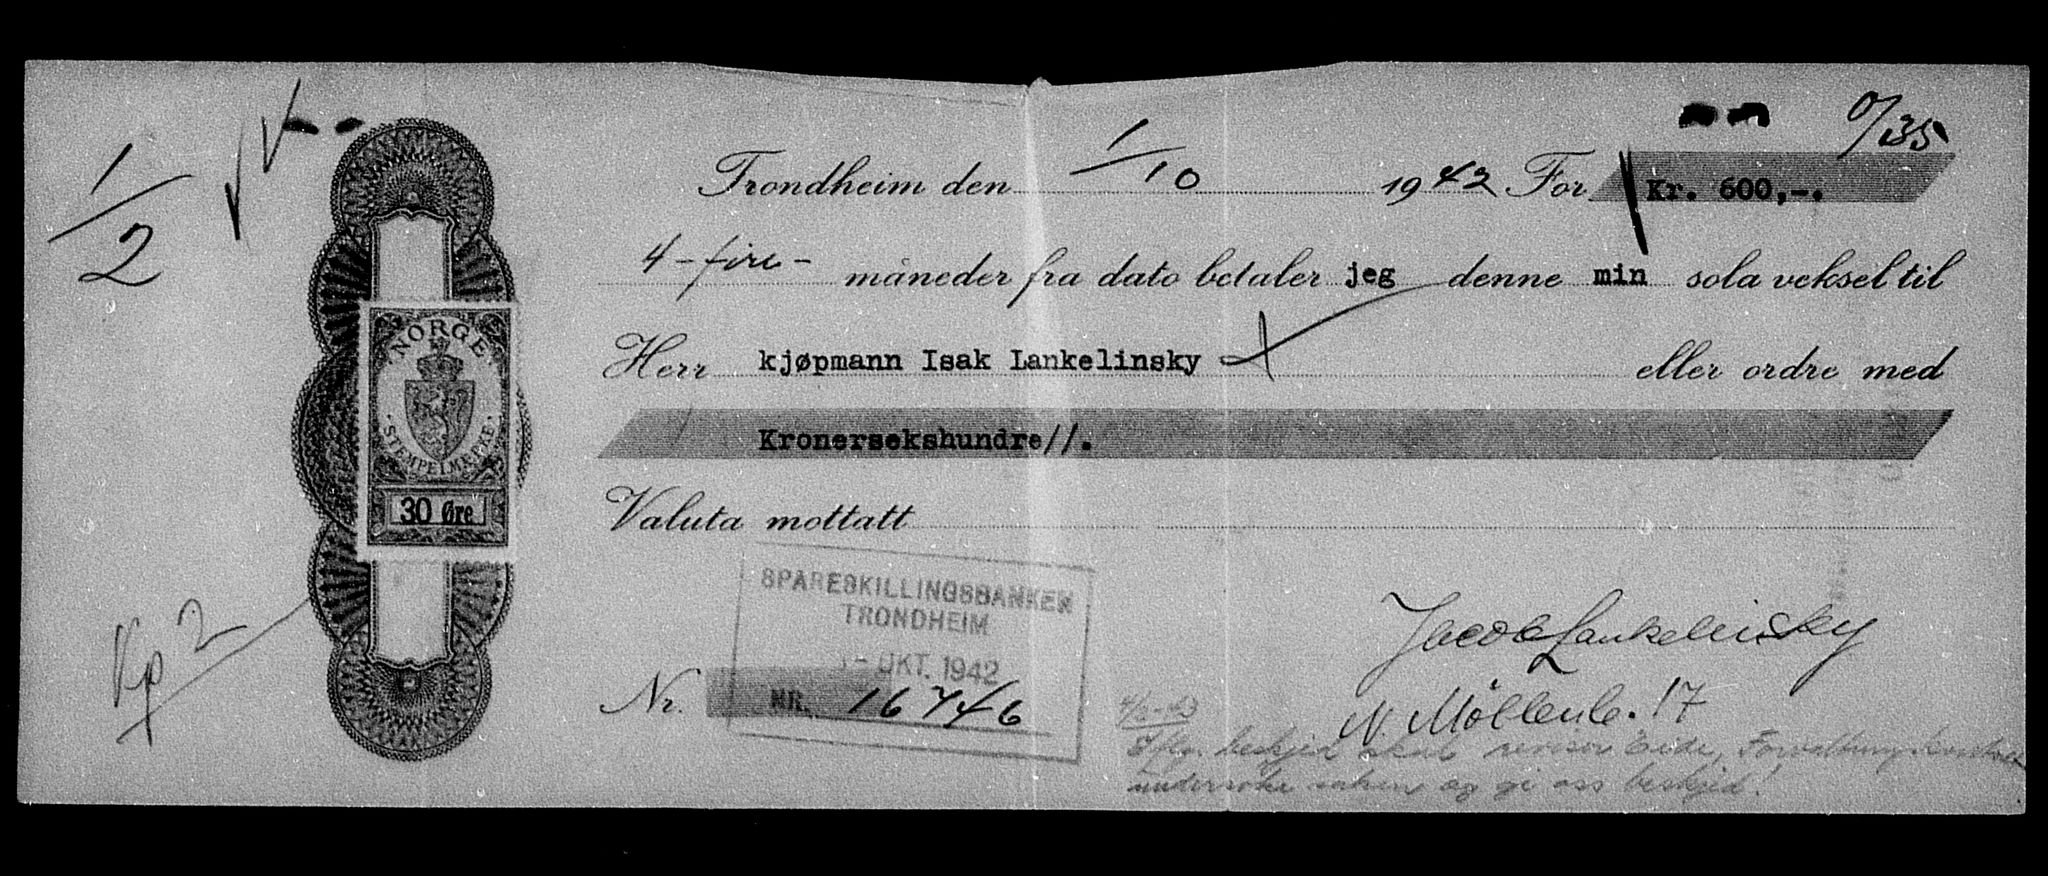 1/2
0/135
Trondheim den 1/10 1942 For Kr. 600,-.
4 - fire - måneder fra dato betaler jeg denne min sola veksel til
Herr kjøpmann Isak Lankelinsky eller ordre med
Kronersekshundre//.
Valuta mottatt
NORGE
STEMPELMERKE
30 Øre
SPARESKILLINGSBANKEN
TRONDHEIM
OKT. 1942
Nr. NR. 16746
Kp 2
Jacob Lankelinsky
N. Möllenb. 17
Iflg. beskjed skal revisor Eide,
undersøke saken og gi oss beskjed!